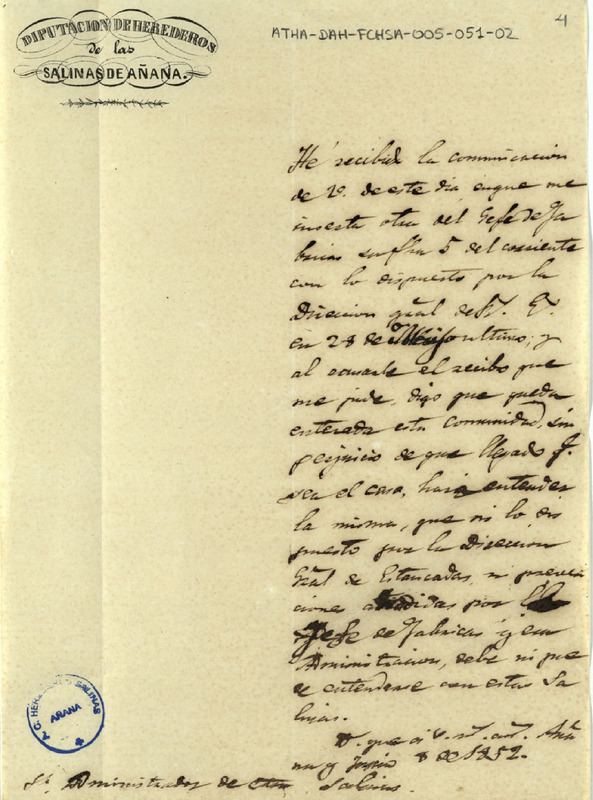 4
ATHA-DAH-FCHSA-005-051-02
DIPUTACION DE HEREDEROS
de las
SALINAS DE AÑANA.
He recibido la comunicacion
de V. de este dia, enque me
inserta otra del Gefe de Fa
bricas su fha 5 del corriente
con lo dispuesto por la
Direccion gral de
en 28 de Mayo ultimo; y
al acusarle el recibo que
me pide, digo que queda
enterada esta comunidad, sin
perjuicio de que llegado q.
sea el caso, hará entender
la misma, que ni lo dis
puesto por la Direccion
Gral de Estancadas, ni preven
ciones añadidas por el
Gefe de Fabricas y esa
Administracion, debe ni pue
de entenderse con estas Sa
linas.
D. gue a V. ms. as. Aña
na y Junio 8 de 1852.
Sr. Administrador de estas Salinas.
A. C. HEREDEROS SALINAS
AÑANA